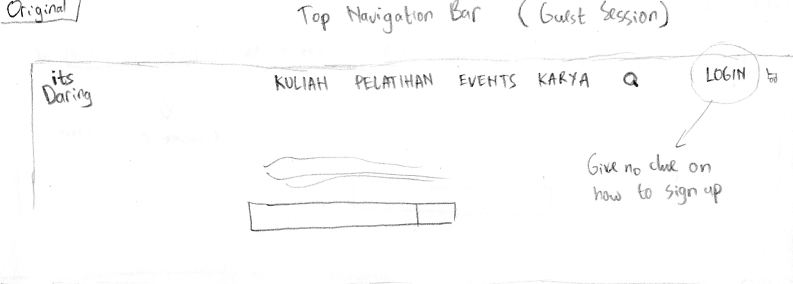 Original
Top Navigation Bar (Guest Session)
its
Daring
KULIAH PELATIHAN EVENTS KARYA LOGIN
Give no clue on
how to sign up